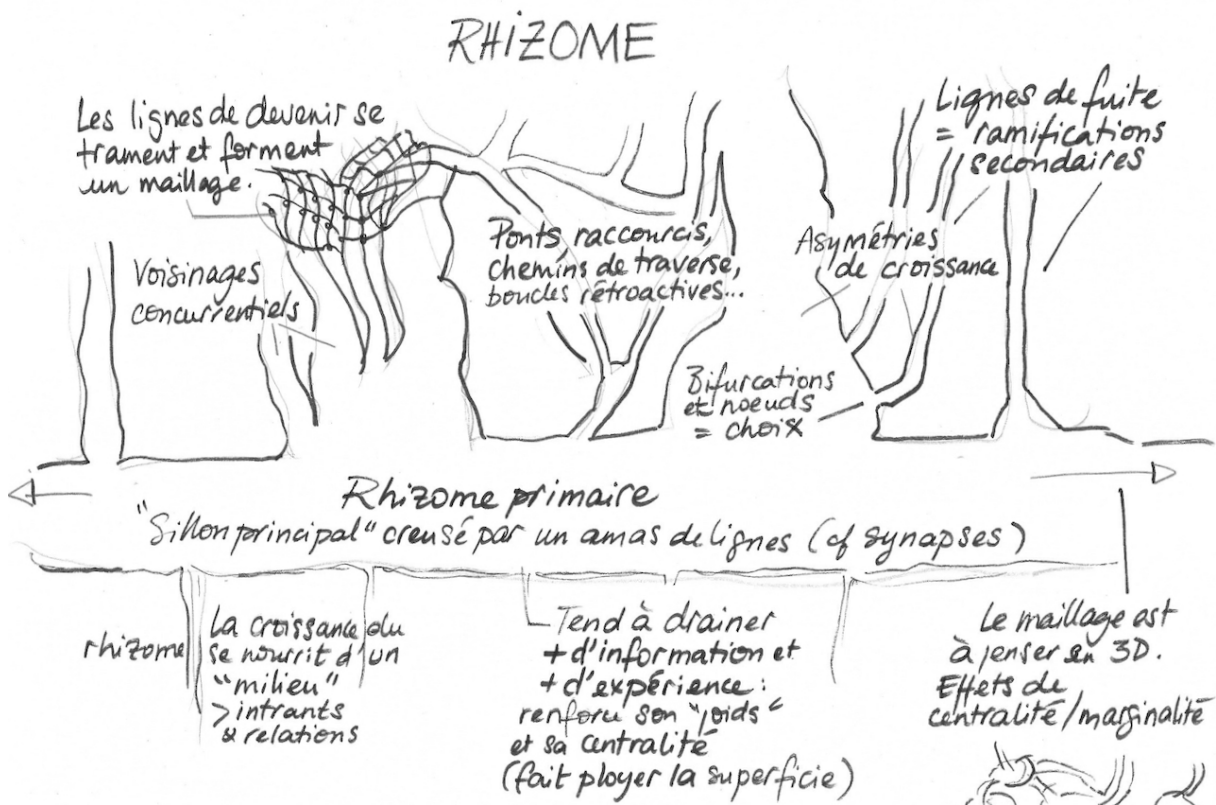 RHIZOME
Les lignes de devenir se
trament et forment
un maillage.
Lignes de fuite
= ramifications
secondaires
Voisinages
concurrentiels
Ponts, raccourcis,
chemins de traverse,
boucles rétroactives...
Asymétries
de croissance
Bifurcations
et noeuds
= choix
Rhizome primaire
"Sillon principal" creusé par un amas de lignes (cf synapses)
rhizome
La croissance du
se nourrit d'un
"milieu"
> intrants
& relations
Tend à drainer
+ d'information et
+ d'expérience :
renforce son "poids"
et sa centralité
(fait ployer la superficie)
Le maillage est
à penser en 3D.
Effets de
centralité/marginalité